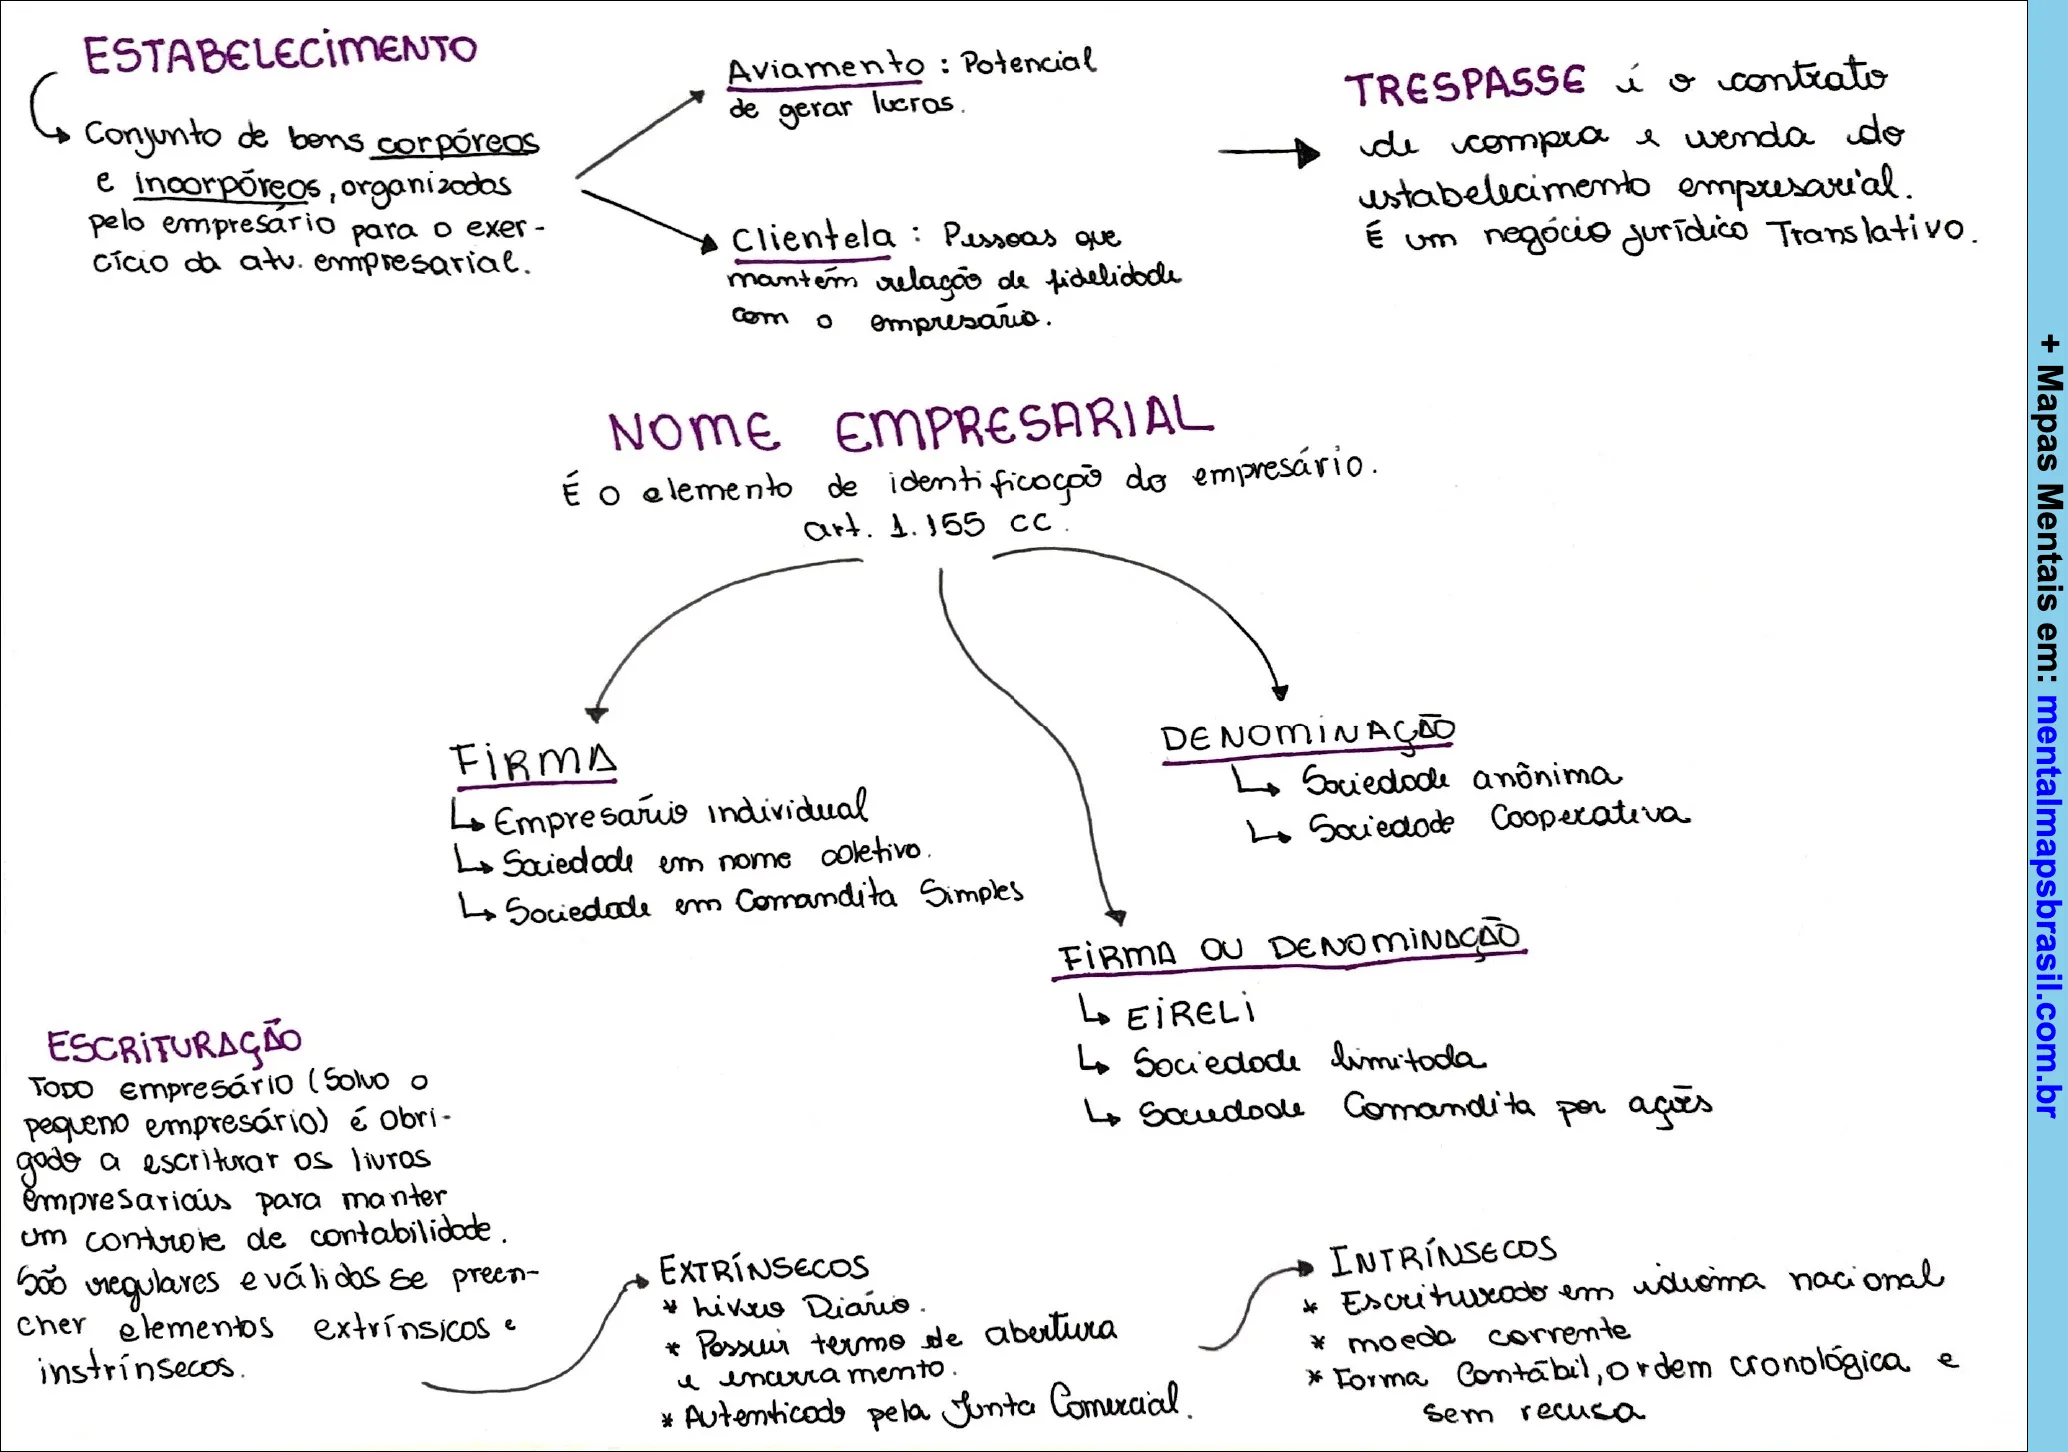 ESTABELECIMENTO
Conjunto de bens corpóreos
e incorpóreos, organizados
pelo empresário para o exer-
cício da atv. empresarial.
Aviamento : Potencial
de gerar lucros.
Clientela : Pessoas que
mantém relação de fidelidade
com o empresário.
TRESPASSE é o contrato
de compra e venda do
estabelecimento empresarial.
É um negócio jurídico Translativo.
NOME EMPRESARIAL
É o elemento de identificação do empresário.
art. 1.155 CC.
FIRMA
Empresário individual
Sociedade em nome coletivo.
Sociedade em Comandita Simples
DENOMINAÇÃO
Sociedade anônima
Sociedade Cooperativa
FIRMA OU DENOMINAÇÃO
EIRELI
Sociedade limitada
Sociedade Comandita por ações
ESCRITURAÇÃO
TODO empresário (Salvo o
pequeno empresário) é obri-
gado a escriturar os livros
empresariais para manter
um controle de contabilidade.
São regulares e válidos se preen-
cher elementos extrínsicos e
instrínsecos.
EXTRÍNSECOS
* Livro Diário.
* Possui termo de abertura
e encerramento.
* Autenticado pela Junta Comercial.
INTRÍNSECOS
* Escriturado em idioma nacional
* moeda corrente
* Forma Contábil, ordem cronológica e
sem recusa
+ Mapas Mentais em: mentalmapsbrasil.com.br